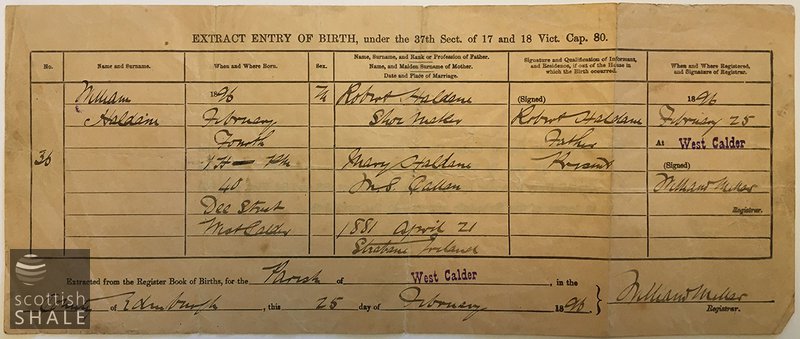 EXTRACT ENTRY OF BIRTH, under the 37th Sect. of 17 and 18 Vict. Cap. 80.
No.
Name and Surname.
When and Where Born.
Sex.
Name, Surname, and Rank or Profession of Father.
Name, and Maiden Surname of Mother.
Date and Place of Marriage.
Signature and Qualification of Informant,
and Residence, if out of the House in
which the Birth occurred.
When and Where Registered,
and Signature of Registrar.
36
William
Haldane
1896
February
Fourth
PM
40
Dee Street
West Calder
M
Robert Haldane
Shoe Maker
Mary Haldane
M.S. Callan
1881 April 21
Strabane Ireland
(Signed)
Robert Haldane
Father
Present
1896
February 25
At West Calder
(Signed)
William Millar
Registrar.
Extracted from the Register Book of Births, for the Parish of West Calder, in the
of Edinburgh, this 25 day of February 1896
William Millar
Registrar.
scottish
SHALE